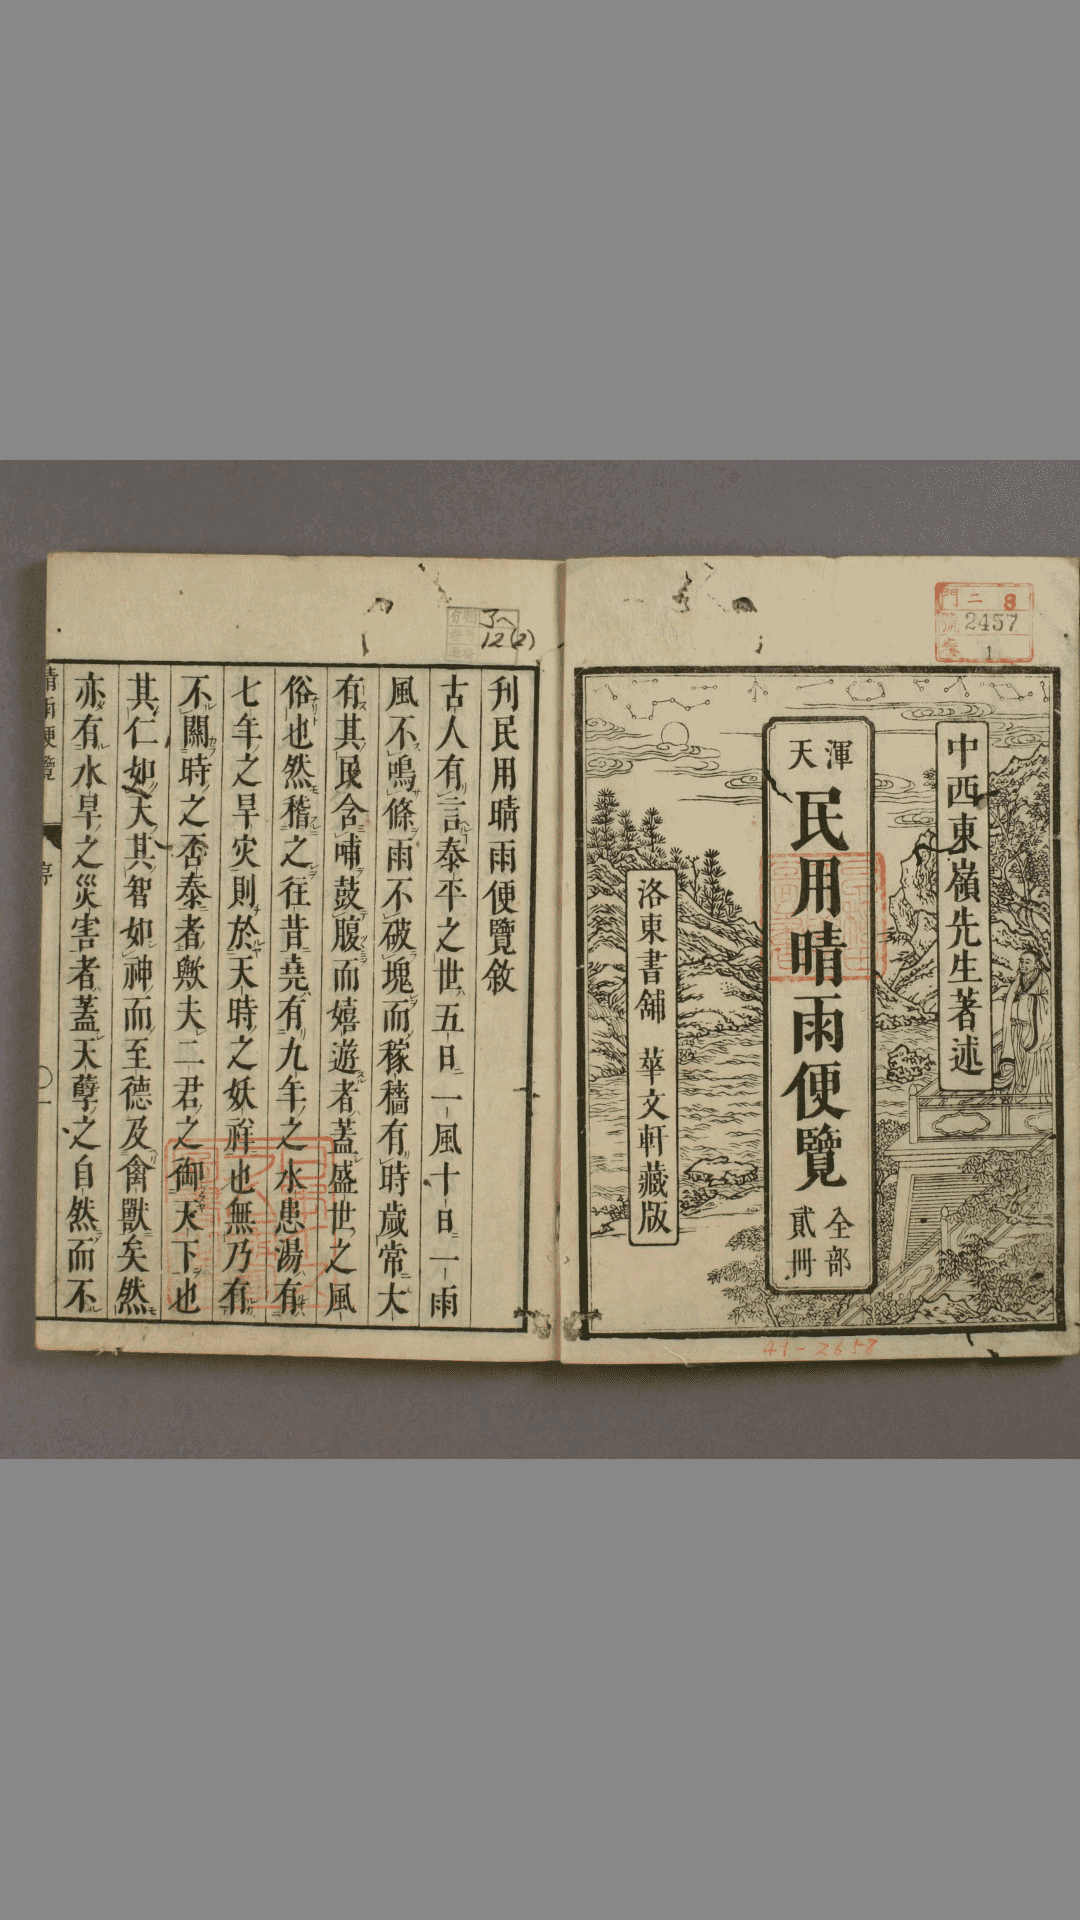 門 二 8
2457
1
中西東嶺先生著述
渾天
民用晴雨便覽
全部
貳冊
洛東書舖 華文軒藏版
41-2658
12(2)
刊民用晴雨便覽敘
古人有言泰平之世五日一風十日一雨
風不鳴條雨不破塊而稼穡有時歲常大
有其民含哺鼓腹而嬉遊者蓋盛世之風
俗也然稽之往昔堯有九年之水患湯有
七年之旱灾則於天時之妖祥也無乃有
不關時之否泰者歟夫二君之御天下也
其仁如天其智如神而至德及禽獸矣然
亦有水旱之災害者蓋天孽之自然而不
晴雨便覽
序
一